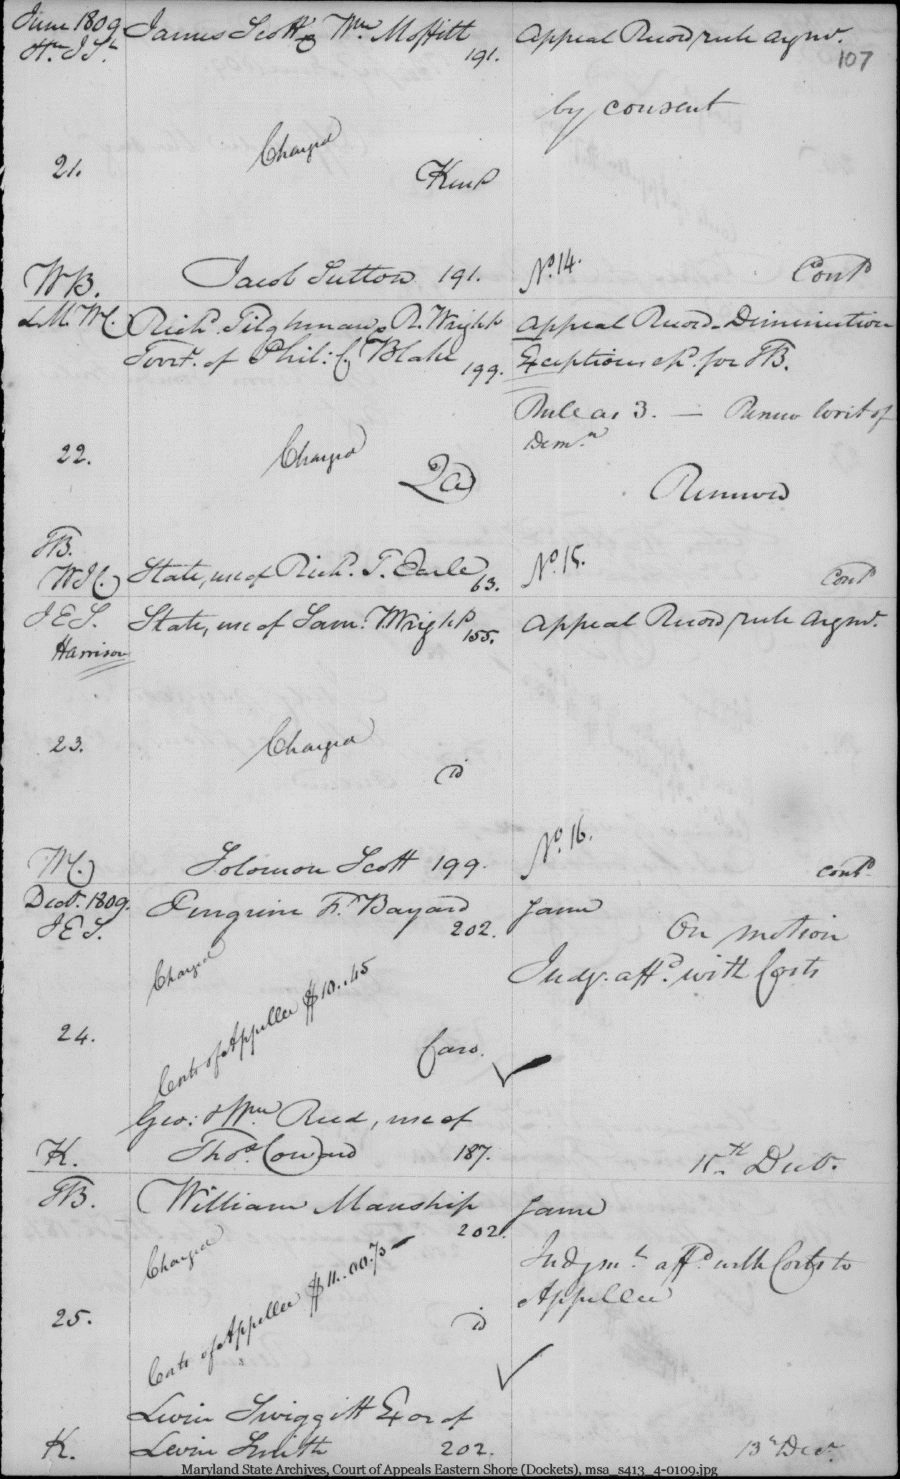 June 1809 James Scott & Wm. Moffitt 191. Appeal Record, rule argmt. 107
by consent
Charged
21. Kent
WB. Jacob Sutton 191. No. 14. Cont
Richd. Tilghman & R. Wright Appeal Record - Diminution
of Phil: Blake 199. Exceptions for TB.
Rule as 3. — Renew Writ of
Dimn.
22. Charged
Qa Renewed
TB.
State, use of Richd. T. Earle 63. No. 15. Cont
J E S. State, use of Saml. Wright 155. Appeal Record, rule Argmt.
Harrison
23. Charged
id
Solomon Scott 199. No. 16. cont
Decr. 1809. Peregrine F. Bayard 202. Same
J E S. On motion
Charged Judgt. affd. with Costs
Costs of Appellee $10..45
24. Caro.
Geo: & Wm. Reed, use of
K. Thos. Coward 187. 15th Decr.
TB. William Manship 202. Same
Charged Judgmt. affd. with Costs to
Appellee
Costs of Appellee $11..00.75
25. id
Levin Swiggitt Exor of
K. Levin Smith 202. 13th Decr.
Maryland State Archives, Court of Appeals Eastern Shore (Dockets), msa_s413_4-0109.jpg